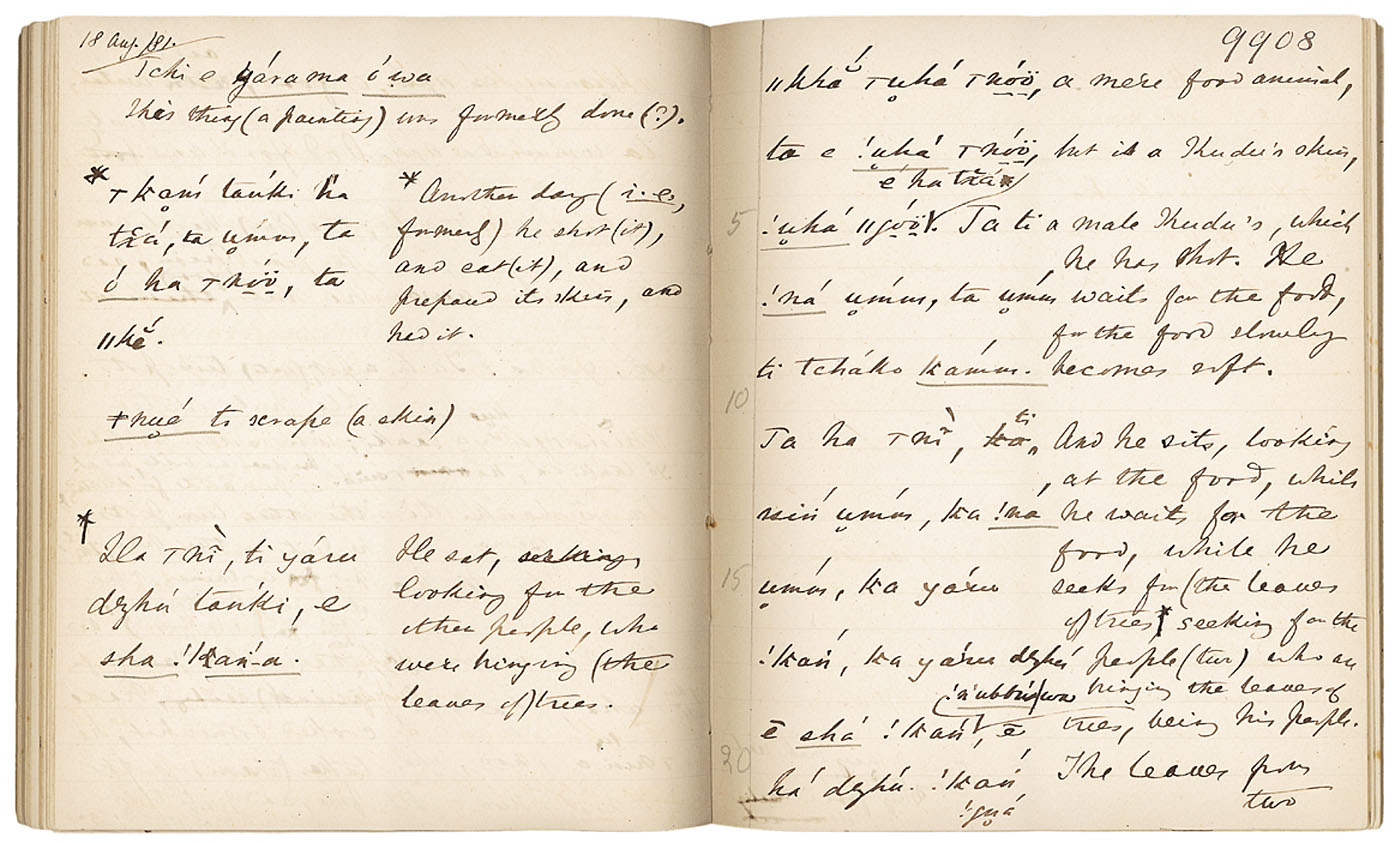 18 Aug. /81.
Tchi e yárama ó wa
This thing (a painting) was formerly done (?).
* т kań tańki ha
tx̌á, ta ụmm, ta
ó ha т nóö, ta
ǁkě́.
* Another day (i.e.,
formerly) he shot (it),
and eat (it), and
prepared its skin, and
had it.
ǂnụé to scrape (a skin)
* Ha т nì̃, ti yáru
dzhú tańki, e
sha !kań-a.
He sat, seeking
looking for the
other people, who
were bringing (the
leaves of) trees.
9908
ǁkhǎ́ т ụhá т nóö, a mere food animal,
ta e !ụhá т nóö, but is a Kudu's skin,
é ha tx̌á
5 !ụhá ǁgóö. Ta ti a male Kudu's, which
he has shot. He
!ná ụmm, ta ụmm waits for the food,
for the food slowly
ti tcháko kámm. becomes soft.
10
Ta ha т nì̃, ti And he sits, looking
at the food, while
ụmm, ka !ná he waits for the
food, while he
15 ụmm, ka yáru seeks for (the leaves
of) trees * seeking for the
!kań, ka yáru dzhú people (two) who are
bringing the leaves of
ē shá !kań, ē trees, being his people.
20 há dzhú. !kań The leaves from
!gụá two